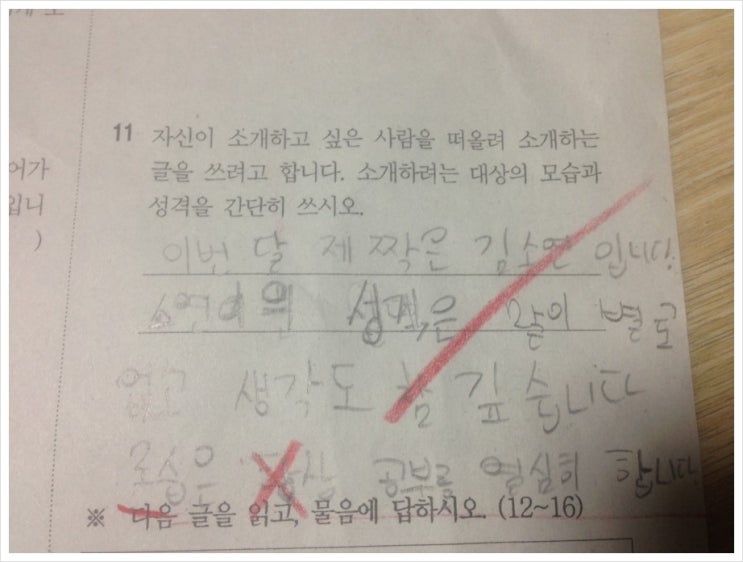 어가
입니
)
11 자신이 소개하고 싶은 사람을 떠올려 소개하는
글을 쓰려고 합니다. 소개하려는 대상의 모습과
성격을 간단히 쓰시오.
이번 달 제 짝은 김소연 입니다.
소연이의 성격은 말이 별로
없고 생각도 참 깊습니다
모습은 항상 공부를 열심히 합니다
※ 다음 글을 읽고, 물음에 답하시오. (12~16)